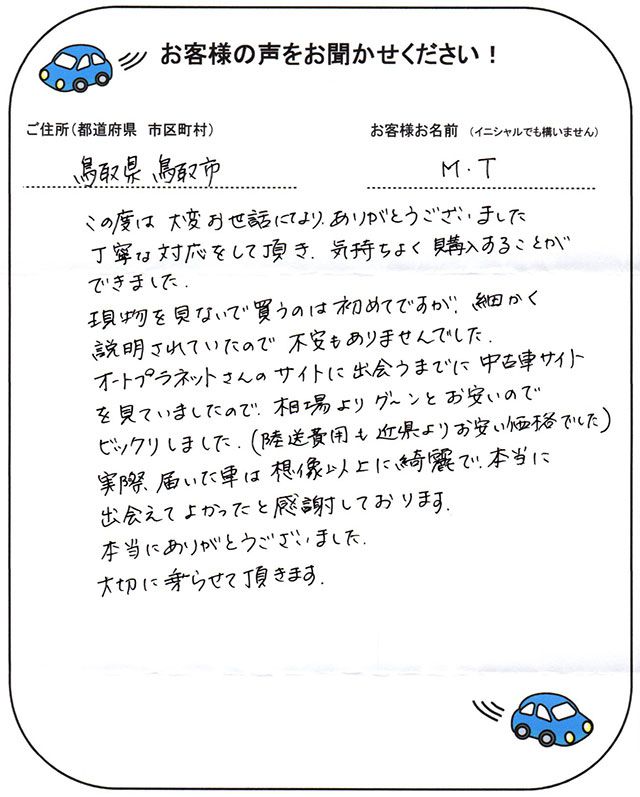 お客様の声をお聞かせください！
ご住所（都道府県 市区町村）
お客様お名前 （イニシャルでも構いません）
鳥取県 鳥取市
M.T
この度は 大変お世話になり、ありがとうございました
丁寧な対応をして頂き、気持ちよく購入することが
できました.
現物を見ないで買うのは初めてですが、細かく
説明されていたので 不安もありませんでした.
オートプラネットさんのサイトに出会うまでに中古車サイト
を見ていましたので、相場よりグ〜ンとお安いので
ビックリしました.（陸送費用も近県よりお安い価格でした）
実際、届いた車は想像以上に綺麗で、本当に
出会えてよかったと感謝しております.
本当にありがとうございました.
大切に乗らせて頂きます.